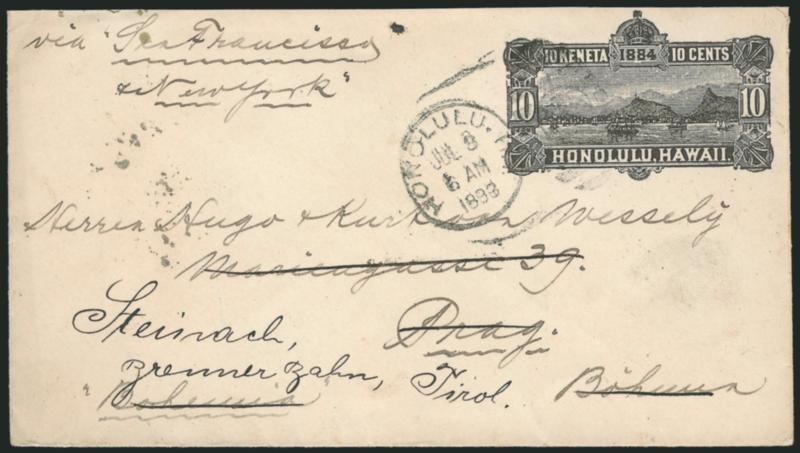 via "San Francisco
& New York"
10 KENETA 1884 10 CENTS
10 10
HONOLULU, HAWAII.
HONOLULU. H
JUL 8
6 AM
1893
Herren Hugo & Kurt von Wessely
Mariengasse 39.
Steinach, Prag.
Brenner Bahn, Tirol.
"Bohemia" Böhmen